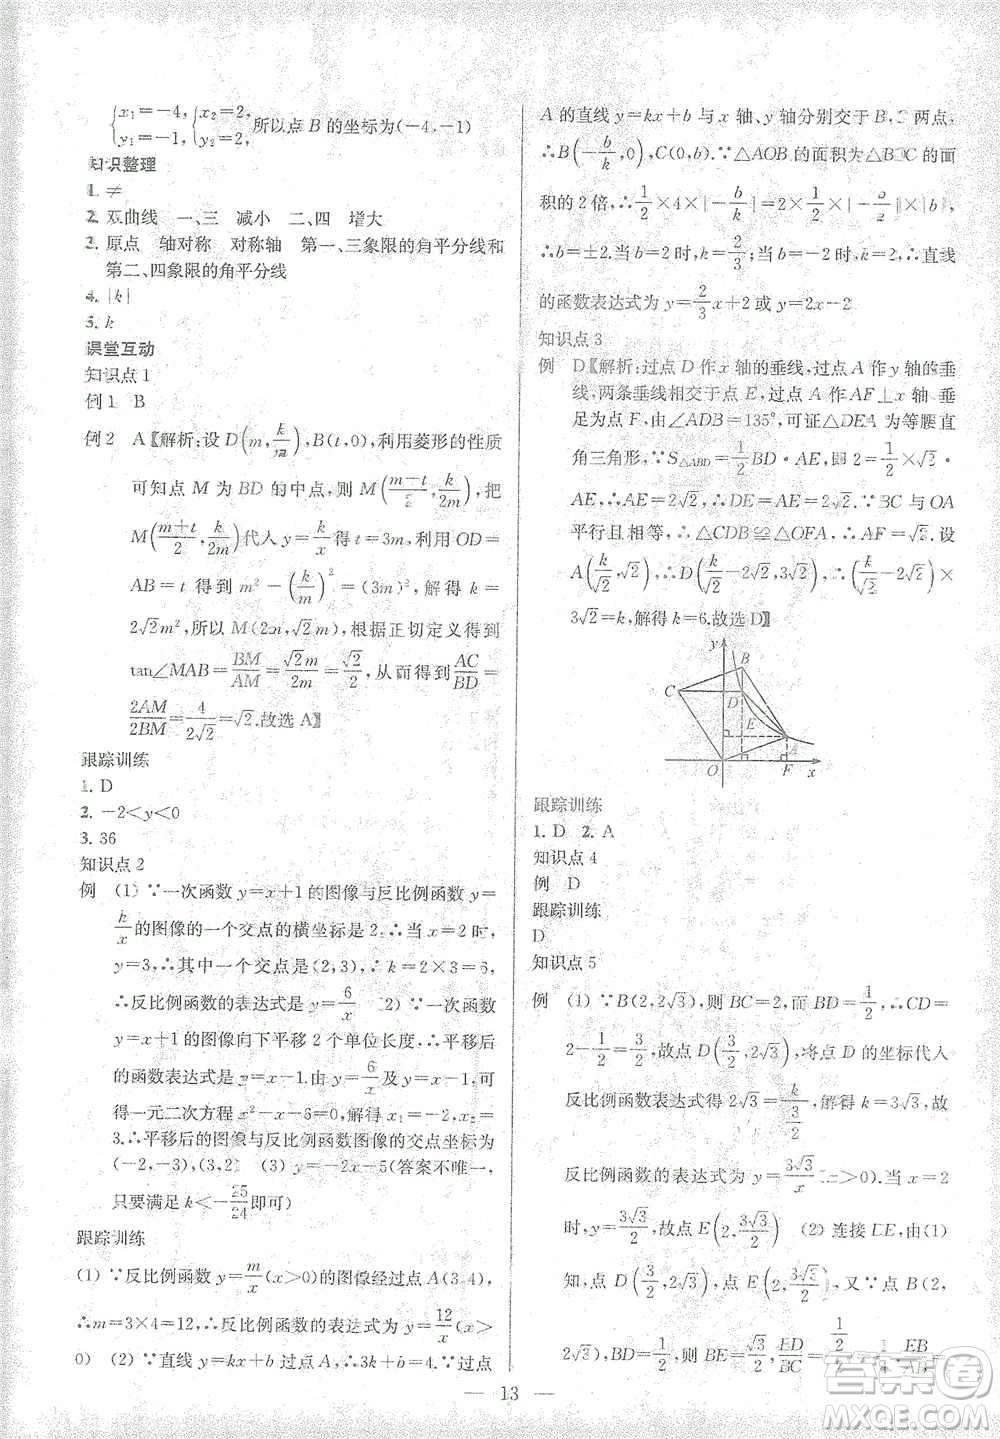 {x₁=-4, y₁=-1, {x₂=2, y₂=2, 所以点 B 的坐标为(-4,-1)
知识整理
1. ≠
2. 双曲线 一、三 减小 二、四 增大
3. 原点 轴对称 对称轴 第一、三象限的角平分线和
第二、四象限的角平分线
4. |k|
5. k
课堂互动
知识点 1
例 1 B
例 2 A【解析:设 D(m, k/m), B(t,0),利用菱形的性质
可知点 M 为 BD 的中点,则 M((m+t)/2, k/2m),把
M((m+t)/2, k/2m)代入 y=k/x 得 t=3m,利用 OD=
AB=t 得到 m²-(k/m)²=(3m)²,解得 k=
2√2m²,所以 M(2m,√2m),根据正切定义得到
tan∠MAB=BM/AM=√2m/2m=√2/2,从而得到 AC/BD=
2AM/2BM=4/2√2=√2.故选 A】
跟踪训练
1. D
2. -2<y<0
3. 36
知识点 2
例 (1) ∵一次函数 y=x+1 的图像与反比例函数 y=
k/x 的图像的一个交点的横坐标是 2,∴当 x=2 时,
y=3,∴其中一个交点是(2,3),∴k=2×3=6,
∴反比例函数的表达式是 y=6/x (2) ∵一次函数
y=x+1 的图像向下平移 2 个单位长度,∴平移后
的函数表达式是 y=x-1,由 y=6/x 及 y=x-1,可
得一元二次方程 x²-x-6=0,解得 x₁=-2,x₂=
3,∴平移后的图像与反比例函数图像的交点坐标为
(-2,-3),(3,2) (3) y=-2x+5(答案不唯一,
只要满足 k<-25/24 即可)
跟踪训练
(1) ∵反比例函数 y=m/x(x>0)的图像经过点 A(3,4),
∴m=3×4=12,∴反比例函数的表达式为 y=12/x(x>
0) (2) ∵直线 y=kx+b 过点 A,∴3k+b=4.∵过点
A 的直线 y=kx+b 与 x 轴、y 轴分别交于 B、C 两点,
∴B(-b/k,0),C(0,b).∵△AOB 的面积为△BOC 的面
积的 2 倍,∴1/2×4×|-b/k|=2×1/2×|-b/k|×|b|,
∴b=±2.当 b=2 时,k=2/3;当 b=-2 时,k=2,∴直线
的函数表达式为 y=2/3x+2 或 y=2x-2
知识点 3
例 D【解析:过点 D 作 x 轴的垂线,过点 A 作 y 轴的垂
线,两条垂线相交于点 E,过点 A 作 AF⊥x 轴,垂
足为点 F,由∠ADB=135°,可证△DEA 为等腰直
角三角形,∵S△ABD=1/2BD·AE=1/2×√2·
AE,∴AE=2√2,∴DE=AE=2√2.∵BC 与 OA
平行且相等,∴△CDB≌△OFA,∴AF=√2.设
A(k/√2,√2),D(k/√2-2√2,3√2),∴(k/√2-2√2)×
3√2=k,解得 k=6.故选 D】
y
B
C
D
E
A
O
F
x
跟踪训练
1. D 2. A
知识点 4
例 D
跟踪训练
D
知识点 5
例 (1) ∵B(2,2√3),则 BC=2,而 BD=1/2,∴CD=
2-1/2=3/2,故点 D(3/2,2√3),将点 D 的坐标代入
反比例函数表达式得 2√3=k/(3/2),解得 k=3√3,故
反比例函数的表达式为 y=3√3/x(x>0).当 x=2
时,y=3√3/2,故点 E(2,3√3/2) (2) 连接 DE,由(1)
知,点 D(3/2,2√3),点 E(2,3√3/2),又∵点 B(2,
2√3),∴BD=1/2,故 BE=√3/2,∴BD/BC=(1/2)/2=1/4=EB/AB,
— 13 —
答案圈
MXQE.COM